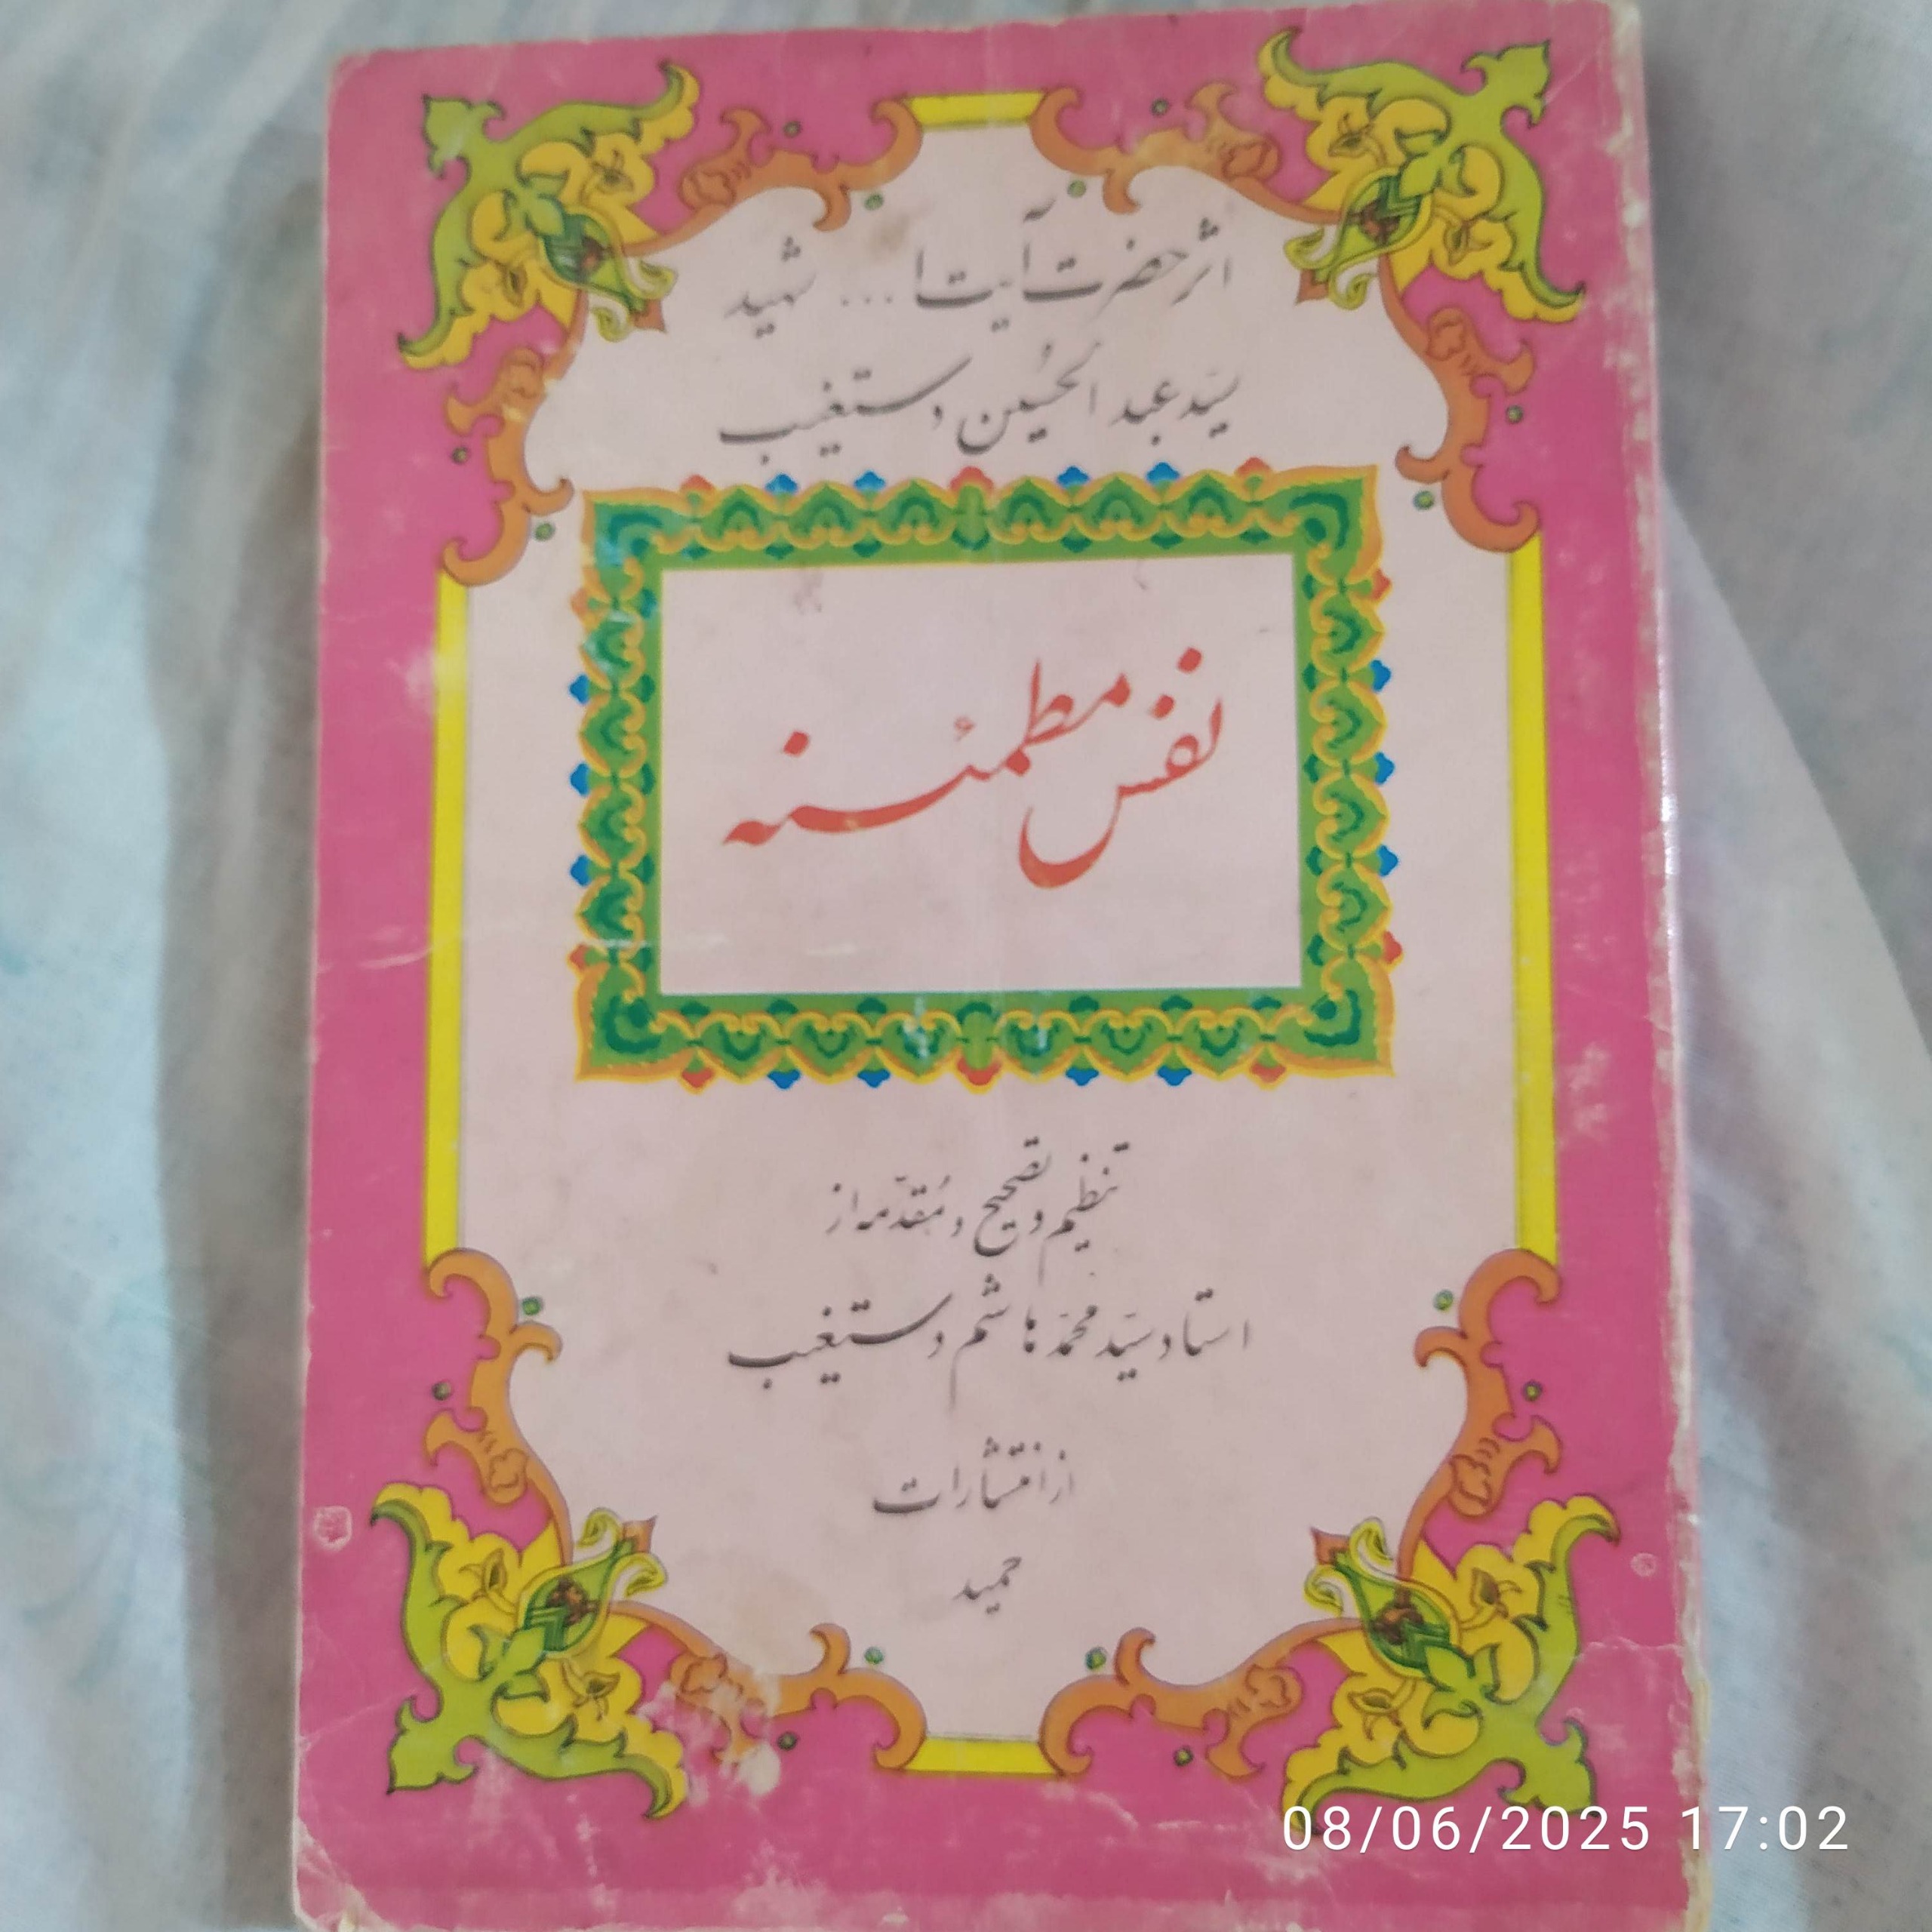 اثر حضرت آیت ا... شهید
سیّد عبدالحُسین دستغیب
نفس مطمئنه
تنظیم و تصحیح و مُقدّمه از
استاد سیّد محمّد هاشم دستغیب
از انتشارات
حمید
08/06/2025 17:02